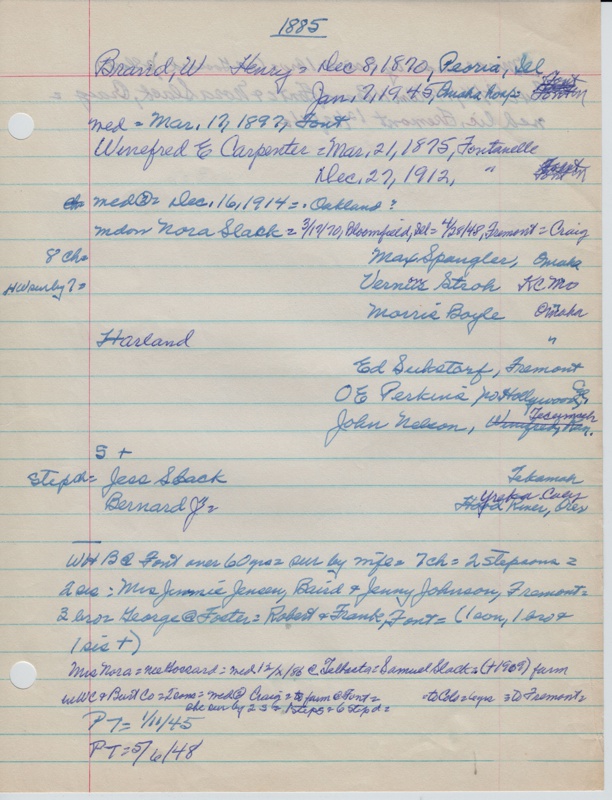 1885
Brand, W Henry = Dec 8, 1870, Peoria, Ill
Jan. 7, 1945, Omaha hosp = Font
med = Mar. 17, 1897, Font
Winefred E. Carpenter = Mar, 21, 1875, Fontanelle
Dec. 27, 1912, " Font
med @ = Dec. 16, 1914 = . Oakland ?
mdon Nora Slack = 3/17/70, Bloomfield, Ill = 4/28/48, Fremont = Craig
8 ch = Max Spangler, Omaha
H W sur by 7 = Vernie Stroh KC Mo
Morris Boyle Omaha
Harland "
Ed Suhstorf, Fremont
O E Perkins, no Hollywood,
John Nelson, Tecumseh
5 +
Step d = Jess Slack Tekamah
Bernard J = Yreka Hood River, Ores
W H B @ Font over 60 yrs = sur by wife = 7 ch = 2 stepsons =
2 sis = Mrs Jimmie Jensen, Baird & Jenny Johnson, Fremont =
3 bro = George @ Foster = Robert & Frank, Font = (1 son, 1 bro &
1 sis +)
Mrs Nora = nee Hossard = med 12/2/86 @ Talberta = Samuel Slack = (+ 1909) farm
in WC & Burt Co = 2 sons = med @ Craig = to farm @ Font = to Colo = 6 yrs = to Fremont =
she sur by 2 s = 1 step s = 6 step d =
P T = 1/11/45
P T = 5/6/48